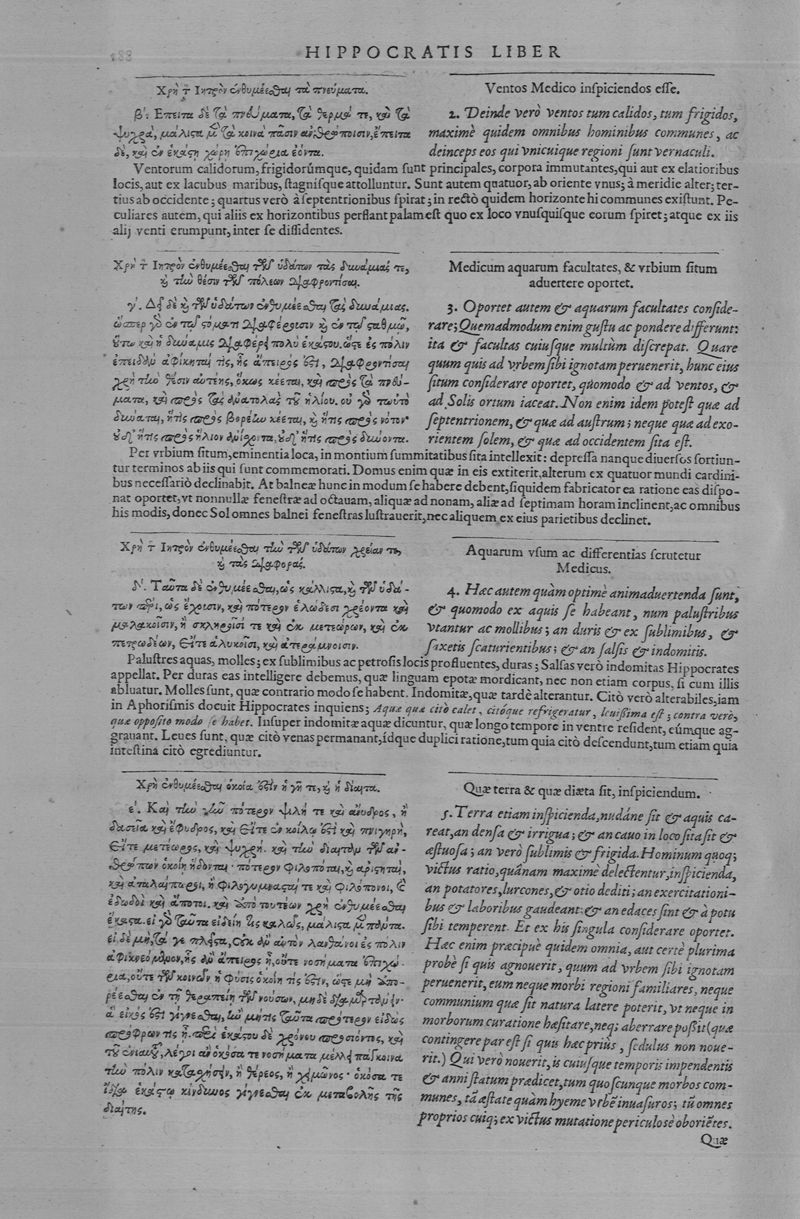 HIPPOCRATIS LIBER
Χρὴ τ Ιητρὸν ἐνθυμέεσθαι τὰ πνεύματα.
β'. Επειτα δὲ τὰ πνεύματα, τὰ θερμά τε, καὶ τὰ
ψυχρά, μάλιστα μὲν τὰ κοινὰ πᾶσιν ἀνθρώποισιν, ἔπειτα
δὲ, καὶ ἐν ἑκάστῃ χώρῃ ἐπιχώρια ἐόντα.
Ventos Medico inſpiciendos eſſe.
2. Deinde verò ventos tum calidos, tum frigidos,
maximè quidem omnibus hominibus communes, ac
deinceps eos qui vnicuique regioni ſunt vernaculi.
Ventorum calidorum, frigidorúmque, quidam ſunt principales, corpora immutantes, qui aut ex elatioribus
locis, aut ex lacubus maribus, ſtagniſque attolluntur. Sunt autem quatuor, ab oriente vnus; à meridie alter; ter-
tius ab occidente; quartus verò à ſeptentrionibus ſpirat; in rectò quidem horizonte hi communes exiſtunt. Pe-
culiares autem, qui aliis ex horizontibus perflant palam eſt quo ex loco vnuſquiſque eorum ſpiret; atque ex iis
alij venti erumpunt, inter ſe diſſidentes.
Χρὴ τ Ιητρὸν ἐνθυμέεσθαι τῶν ὑδάτων τὰς δυνάμιάς τε,
καὶ τὴν θέσιν τῶν πόλεων διαφροντίσαι.
γ'. Δεῖ δὲ καὶ τῶν ὑδάτων ἐνθυμέεσθαι τὰς δυνάμιας.
ὥσπερ γὸ ἐν τῷ στόματι διαφέρουσιν καὶ ἐν τῷ σταθμῷ,
οὕτω καὶ ἡ δύναμις διαφέρει πολὺ ἑκάστου. ὥστε ἐς πόλιν
ἐπειδὰν ἀφίκηταί τις, ἧς ἄπειρός ἐστι, διαφροντίσαι
χρὴ τὴν θέσιν αὐτέης, ὅκως κέεται, καὶ πρὸς τὰ πνεύ-
ματα, καὶ πρὸς τὰς ἀνατολὰς τοῦ ἡλίου. οὐ γὸ τωὐτὸ
δύναται, ἥτις πρὸς βορέην κέεται, καὶ ἥτις πρὸς νότον·
οὐδ' ἥτις πρὸς ἥλιον ἀνίσχοντα, οὐδ' ἥτις πρὸς δύνοντα.
Medicum aquarum facultates, & vrbium ſitum
aduertere oportet.
3. Oportet autem & aquarum facultates conſide-
rare; Quemadmodum enim guſtu ac pondere differunt:
ita & facultas cuiuſque multùm diſcrepat. Quare
quum quis ad vrbem ſibi ignotam peruenerit, hunc eius
ſitum conſiderare oportet, quomodo & ad ventos, &
ad Solis ortum iaceat. Non enim idem poteſt quæ ad
ſeptentrionem, & quæ ad auſtrum; neque quæ ad exo-
rientem ſolem, & quæ ad occidentem ſita eſt.
Per vrbium ſitum, eminentia loca, in montium ſummitatibus ſita intellexit: depreſſa nanque diuerſos ſortiun-
tur terminos ab iis qui ſunt commemorati. Domus enim quæ in eis extiterit, alterum ex quatuor mundi cardini-
bus neceſſariò declinabit. At balneæ hunc in modum ſe habere debent, ſiquidem fabricator ea ratione eas diſpo-
nat oportet, vt nonnullæ feneſtræ ad octauam, aliquæ ad nonam, aliæ ad ſeptimam horam inclinent, ac omnibus
his modis, donec Sol omnes balnei feneſtras luſtrauerit, nec aliquem ex eius parietibus declinet.
Χρὴ τ Ιητρὸν ἐνθυμέεσθαι τὴν τῶν ὑδάτων χρείαν τε,
καὶ τὰς διαφοράς.
δ'. Ταῦτα δὲ ἐνθυμέεσθαι, ὡς κάλλιστα, καὶ τῶν ὑδά-
των πέρι, ὡς ἔχουσιν, καὶ πότερον ἑλώδεσι χρέονται καὶ
μαλακοῖσιν, ἢ σκληροῖσί τε καὶ ἐκ μετεώρων, καὶ ἐκ
πετρωδέων, εἴτε ἁλυκοῖσι, καὶ ἀτεράμνοισιν.
Aquarum vſum ac differentias ſcrutetur
Medicus.
4. Hæc autem quàm optimè animaduertenda ſunt,
& quomodo ex aquis ſe habeant, num paluſtribus
vtantur ac mollibus; an duris & ex ſublimibus, &
ſaxetis ſcaturientibus; & an ſalſis & indomitis.
Paluſtres aquas, molles; ex ſublimibus ac petroſis locis profluentes, duras; Salſas verò indomitas Hippocrates
appellat. Per duras eas intelligere debemus, quæ linguam epotæ mordicant, nec non etiam corpus, ſi cum illis
abluatur. Molles ſunt, quæ contrario modo ſe habent. Indomitæ, quæ tardè alterantur. Citò verò alterabiles, iam
in Aphoriſmis docuit Hippocrates inquiens; Aqua quæ citò calet, citóque refrigeratur, leuiſſima eſt; contra verò,
quæ oppoſito modo ſe habet. Inſuper indomitæ aquæ dicuntur, quæ longo tempore in ventre reſident, eúmque ag-
grauant. Leues ſunt, quæ citò venas permanant, ídque duplici ratione, tum quia citò deſcendunt, tum etiam quia
inteſtina citò egrediuntur.
Χρὴ ἐνθυμέεσθαι ὁκοία ἐστὶν ἡ γῆ τε, καὶ ἡ δίαιτα.
ε'. Καὶ τὴν γῆν πότερον ψιλή τε καὶ ἄνυδρος, ἢ
δασεῖα καὶ ἔφυδρος, καὶ εἴτε ἐν κοίλῳ ἐστὶ καὶ πνιγηρὴ,
εἴτε μετέωρος, καὶ ψυχρή. καὶ τὴν δίαιταν τῶν ἀν-
θρώπων ὁκοίῃ ἥδονται· πότερον φιλοπόται, καὶ ἀριστηταὶ,
καὶ ἀταλαίπωροι, ἢ φιλογυμνασταί τε καὶ φιλόπονοι, καὶ
ἐδωδοὶ καὶ ἄποτοι. καὶ ἀπὸ τουτέων χρὴ ἐνθυμέεσθαι
ἕκαστα. εἰ γὸ ταῦτα εἰδείη τις καλῶς, μάλιστα μὲν πάντα.
εἰ δὲ μὴ, τά γε πλεῖστα, οὐκ ἂν αὐτὸν λανθάνοι ἐς πόλιν
ἀφικνεόμενον, ἧς ἂν ἄπειρος ᾖ, οὔτε νοσήματα ἐπιχώ-
ρια, οὔτε τῶν κοινῶν ἡ φύσις ὁκοίη τις ἐστὶν, ὥστε μὴ ἀπο-
ρέεσθαι ἐν τῇ θεραπείῃ τῶν νούσων, μηδὲ διαμαρτάνειν·
ἃ εἰκός ἐστι γίγνεσθαι, ἢν μή τις ταῦτα πρότερον εἰδὼς
προφρων τις ᾖ. περὶ ἑκάστου δὲ χρόνου προσιόντος, καὶ
τοῦ ἐνιαυτοῦ, λέγοι ἂν ὁκόσα τε νοσήματα μέλλει πάγκοινα
τὴν πόλιν κατασχήσειν, ἢ θέρεος, ἢ χειμῶνος· ὁκόσα τε
ἴδια ἑκάστῳ κίνδυνος γίγνεσθαι ἐκ μεταβολῆς τῆς
διαίτης.
Quæ terra & quæ diæta ſit, inſpiciendum.
5. Terra etiam inſpicienda, nudáne ſit & aquis ca-
reat, an denſa & irrigua; & an cauo in loco ſita ſit &
æſtuoſa; an verò ſublimis & frigida. Hominum quoq;
victus ratio, quánam maximè delectentur, inſpicienda,
an potatores, lurcones, & otio dediti; an exercitationi-
bus & laboribus gaudeant: & an edaces ſint & à potu
ſibi temperent. Et ex his ſingula conſiderare oportet.
Hæc enim præcipuè quidem omnia, aut certè plurima
probè ſi quis agnouerit, quum ad vrbem ſibi ignotam
peruenerit, eum neque morbi regioni familiares, neque
communium quæ ſit natura latere poterit, vt neque in
morborum curatione hæſitare, neq; aberrare poſſit (quæ
contingere par eſt ſi quis hæc priùs, ſedulus non noue-
rit.) Qui verò nouerit, is cuiuſque temporis impendentis
& anni ſtatum prædicet, tum quoſcunque morbos com-
munes, tā æſtate quàm hyeme vrbē inuaſuros; tū omnes
proprios cuiq; ex victus mutatione periculosè oboriētes.
Quæ